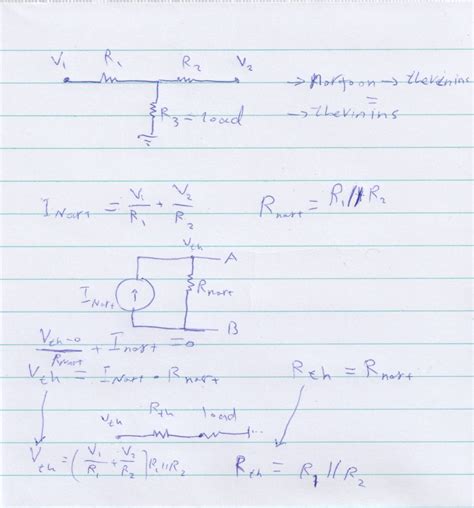 V₁ R₁ R₂ V₂
→ Nortoon → thevenins
=
R₃ = load → thevinins
I Nort = V₁/R₁ + V₂/R₂ R nort = R₁ // R₂
V th A
I Nort ↑ R nort
B
(V th - 0)/R nort + I nort = 0
V th = I Nort • R nort R th = R nort
V th R th load
V th = (V₁/R₁ + V₂/R₂) R₁ // R₂ R th = R₁ // R₂